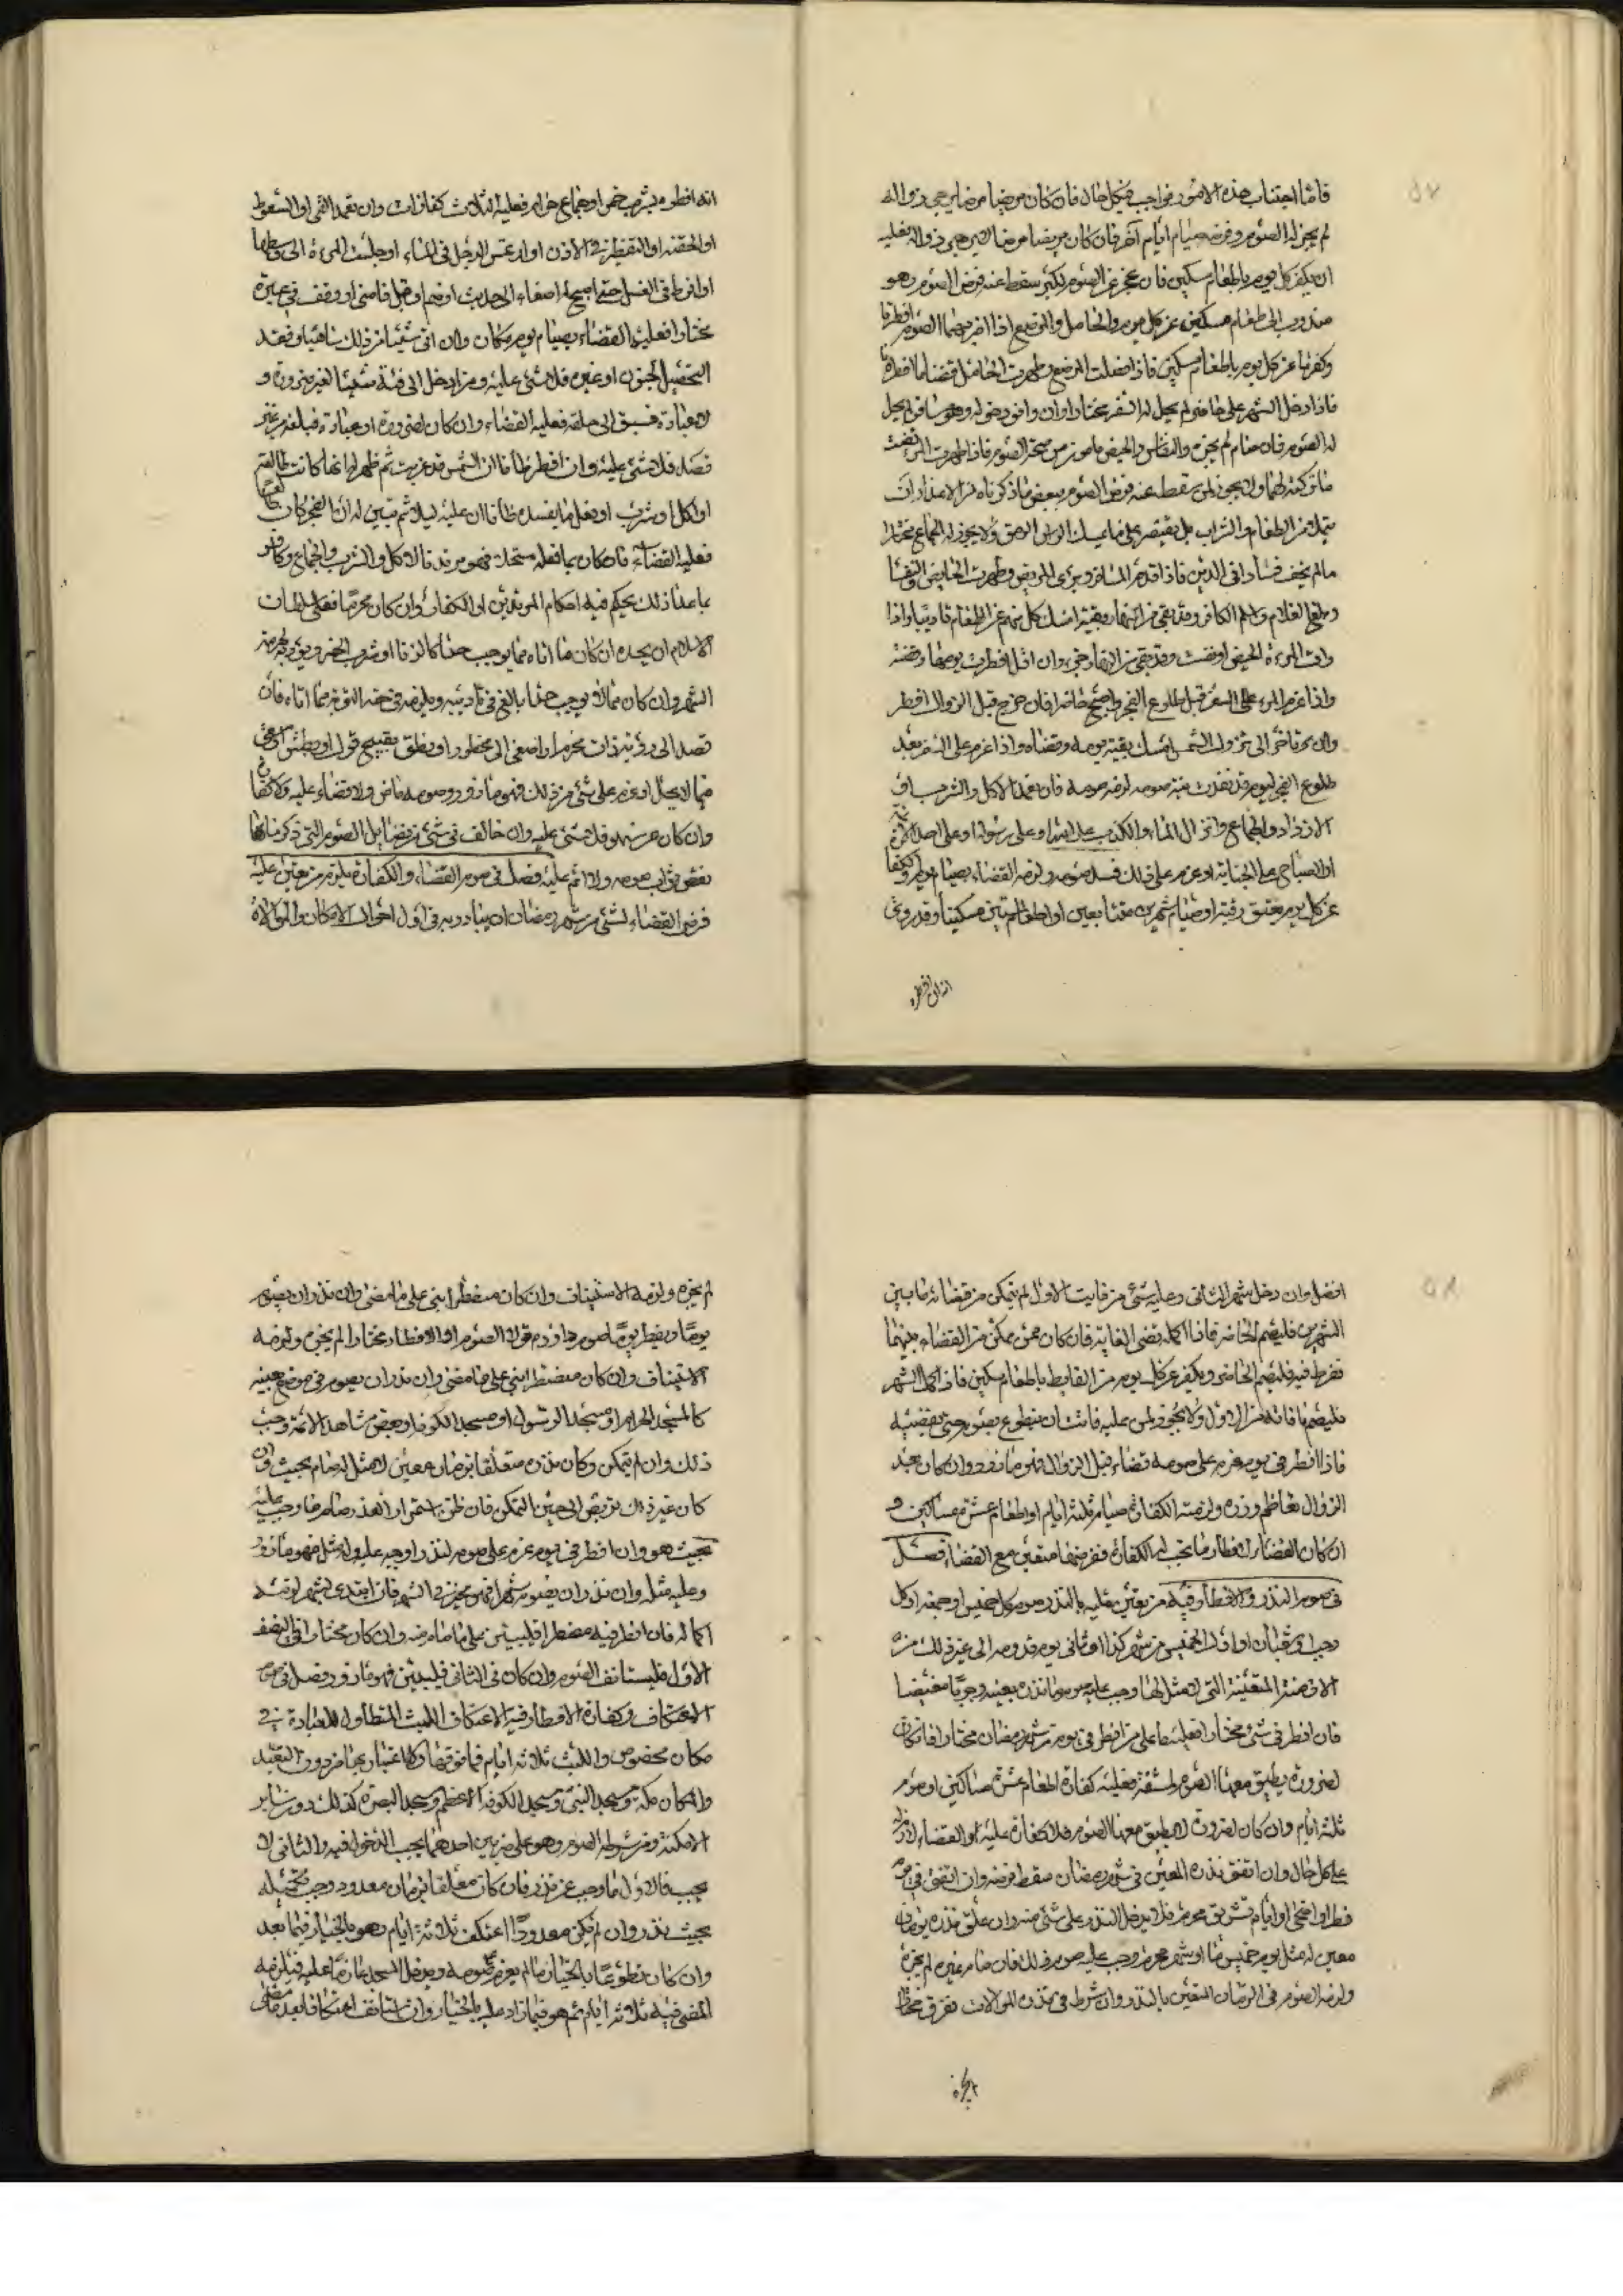 فاما اجتناب هذه الامور فواجب في كل حال فان كان مريضا مرضا يرجى زواله
لم يجز له الصوم وفرضه صيام ايام اخر فان كان مريضا مرضا لا يرجى زواله فعليه
ان يكفر كل يوم باطعام مسكين فان عجز عن الصوم لكبر سقط عنه فرض الصوم وهو
مندوب الى طعام مسكين عن كل يوم والحامل والمرضع اذا اضر بهما الصوم افطرتا
وكفرتا عن كل يوم باطعام مسكين فاذا فصلت المرضع وطهرت الحامل قضتا ما افطرتا
فاذا دخل الشهر على حاضر لم يحل له السفر مختارا وان وافق دخوله وهو مسافر لم يحل
له الصوم فان صام لم يجزه والنفاس والحيض مانع من صحة الصوم فاذا طهرت المرءة قضت
ما تركته لهما ولا يجوز لمن سقط عنه فرض الصوم ببعض ما ذكرناه من الاعذار ان
يتملا من الطعام والشراب بل يقتصر على ما يمسك الرمق ولا يجوز له الجماع مختارا
مالم يخف فسادا في الدين فاذا قدم المسافر وبرئ المريض وطهرت الحايض والنفساء
وبلغ الغلام واسلم الكافر وقد بقي من النهار بقية امسك كل منهم عن الطعام تاديبا واذا
رات المرءة الحيض او نفست وقد بقي من النهار جزء وان قل افطرت يومها وقضته
واذا عزم المرء على السفر قبل طلوع الفجر واصبح حاضرا فان خرج قبل الزوال افطر
وان تاخر الى زوال الشمس امسك بقية يومه وقضاه واذا عزم على السفر بعد
طلوع الفجر ليوم قد نفذت نية صومه لزمه صومه فان تعمد الاكل والشرب او
الازدراد والجماع وانزال الماء والكذب على الله او على رسوله او على احد الائمة
او الصباح على الجنابة او عزم على ذلك فسد صومه ولزمه القضاء بصيام يوم والكفارة
عن كل يوم بعتق رقبة او صيام شهرين متتابعين او اطعام ستين مسكينا وقد روي
انه ان افطره
انه افطره بشرب خمر او جماع حرام فعليه الثلاث كفارات وان تعمد القي او السعوط
او الحقنة او التقطير في الاذن او ارتمس الرجل في الماء او جلست المرءة الى وسطها
او افرط في الغسل حتى اصبح او اصغاء الى حديث او ضم او قبل فامنى او وقف في غبرة
مختارا فعليه القضاء بصيام يوم مكان وان اتى شيئا من ذلك ساهيا وفقد
التحصيل لجنون او غيره فلا شئ عليه ومن ادخل الى فيه شيئا لغير ضرورة و
لا عبادة فسبق الى حلقه فعليه القضاء وان كان لضرورة او عبادة فبلغه من غير
قصد فلا شئ عليه وان افطر ظانا ان الشمس قد غربت ثم ظهر له انها كانت طالعة
او اكل او شرب او فعل ما يفسده ظانا ان عليه ليلا ثم تبين له ان الفجر كان طالعا
فعليه القضاء فان كان بما فعله مستحلا فهو مرتد بالاكل والشرب والجماع وكافر
بما عدا ذلك يحكم فيه احكام المرتدين او الكفار وان كان محرما فعلى سلطان
الاسلام ان يحده ان كان ما اتاه مما يوجب حدا كالزنا او شرب الخمر ويعزره لحرمة
الشهر وان كان مما لا يوجب حدا بالغ في تاديبه ويلزمه في حقه التوبة مما اتاه فان
قصد الى رؤية ذات محرم او اصغى الى محظور او نطق بقبيح قول او بطش او سعى
فيما لا يحل او عزم على شئ من ذلك فهو مازور وصومه ماض ولا قضاء عليه ولا كفارة
وان كان عن سهو فلا شئ عليه وان خالف في شئ من فضايل الصوم التي ذكرناها
نقص ثواب صومه ولا اثم عليه فصل في صوم القضاء والكفارة يلزم من تعين عليه
فرض القضاء لشئ من شهر رمضان ان يبادر به في اول احوال الامكان والموالاة
افضل وان دخل شهر الثاني وعليه شئ من فايت الاول لم يتمكن من قضائه ما بين
الشهرين فليصم الحاضر فاذا اكمله قضى الفايت فان كان ممن يمكن من القضاء بينهما
ففرط فيه فليصم الحاضر ويكفر عن كل يوم من الفايت باطعام مسكين فاذا اكمل الشهر
فليصم ما فاته من الاول ولا يجوز لمن عليه فائت ان يتطوع بصوم حتى يقضيه
فاذا افطر في يوم عزم على صومه قضاء قبل الزوال فهو مازور وان كان بعد
الزوال تعاظم وزره ولزمته الكفارة صيام ثلثة ايام او اطعام عشرة مساكين و
ان كان القضاء لافطار ما تجب له الكفارة ففرضها متعين مع القضاء فصل
في صوم النذر والافطار فيه من تعين عليه بالنذر صوم كل خميس او جمعة او كل
رجب او شعبان او اول الخميس من شهر كذا او ثاني يوم قدومه الى غير ذلك من
الازمنة المتعينة التي لا مثل لها وجب عليه صوم ما نذره بعينه وجوبا مضيقا
فان افطر في شئ مختارا فعليه ما على من افطر في يوم من شهر رمضان مختارا فان كان
لضرورة يطيق معها الصوم لمشقة فعليه كفارة اطعام عشرة مساكين او صوم
ثلثة ايام وان كان لضرورة لا يطيق معها الصوم فلا كفارة عليه والقضاء لازم له
على كل حال وان اتفق نذره المعين في شهر رمضان سقط فرضه وان اتفق في يوم
فطر او اضحى او ايام تشريق محرم فلا يدخل النذر على شئ منه وان علق نذره بزمان
معين له مثل يوم خميس ما او شهر محرم وجب عليه صوم ذلك فان صام غيره لم يجزه
ولزمه الصوم في الزمان المتعين بالنذر وان شرط في نذره الموالات ففرق مختارا
لم يجزه
لم يجزه ولزمه الاستيناف وان كان مضطرا بنى على ما مضى وان نذر ان يصوم
يوما ويفطر يوما صوم داود فوالا الصوم او الافطار مختارا لم يجزه ولزمه
الاستيناف وان كان مضطرا بنى على ما مضى وان نذر ان يصوم في موضع بعينه
كالمسجد الحرام او مسجد الرسول او مسجد الكوفة او بعض مشاهد الائمة وجب
ذلك وان لم يتمكن وكان نذره متعلقا بزمان معين لا مثل له صام بحيث هو وان
كان غير ذلك تربص الى حين التمكن فان ظن استمرار العذر صام ما وجب عليه
بحيث هو وان افطر في يوم عزم على صومه لنذر اوجبه عليه وله مثل فهو مازور
وعليه مثله وان نذر ان يصوم شهرا فهو مخير في الشهور فان ابتدى بشهر لزمه
اكماله فان افطر فيه مضطرا فليبن على ما صامه منه وان كان مختارا في النصف
الاول فليستانف الصوم وان كان في الثاني فليبن فهو مازور فصل في صوم
الاعتكاف وكفارة الافطار فيه الاعتكاف اللبث المتطاول للعبادة في
مكان مخصوص واللبث ثلاثة ايام فما فوقها ولا اعتبار بما من دون التعبد
والمكان مكة ومسجد النبي ومسجد الكوفة الاعظم ومسجد البصرة كذلك دون ساير
الامكنة ومن شرطه الصوم وهو على ضربين احدهما يجب الدخول فيه والثاني لا
يجب فالاول ما وجب عن نذر فان كان معلقا بزمان معدود وجب تكميله
بحيث نذر وان لم يكن معدودا اعتكف ثلاثة ايام وهو بالخيار فيما بعد
وان كان تطوعا بالخيار مالم يعزم صومه ويدخل المسجد عازما عليه فيلزمه
المضي فيه ثلاثة ايام ثم هو فيما زاد عليه بالخيار وان استانف اعتكافا بعد ما مضى